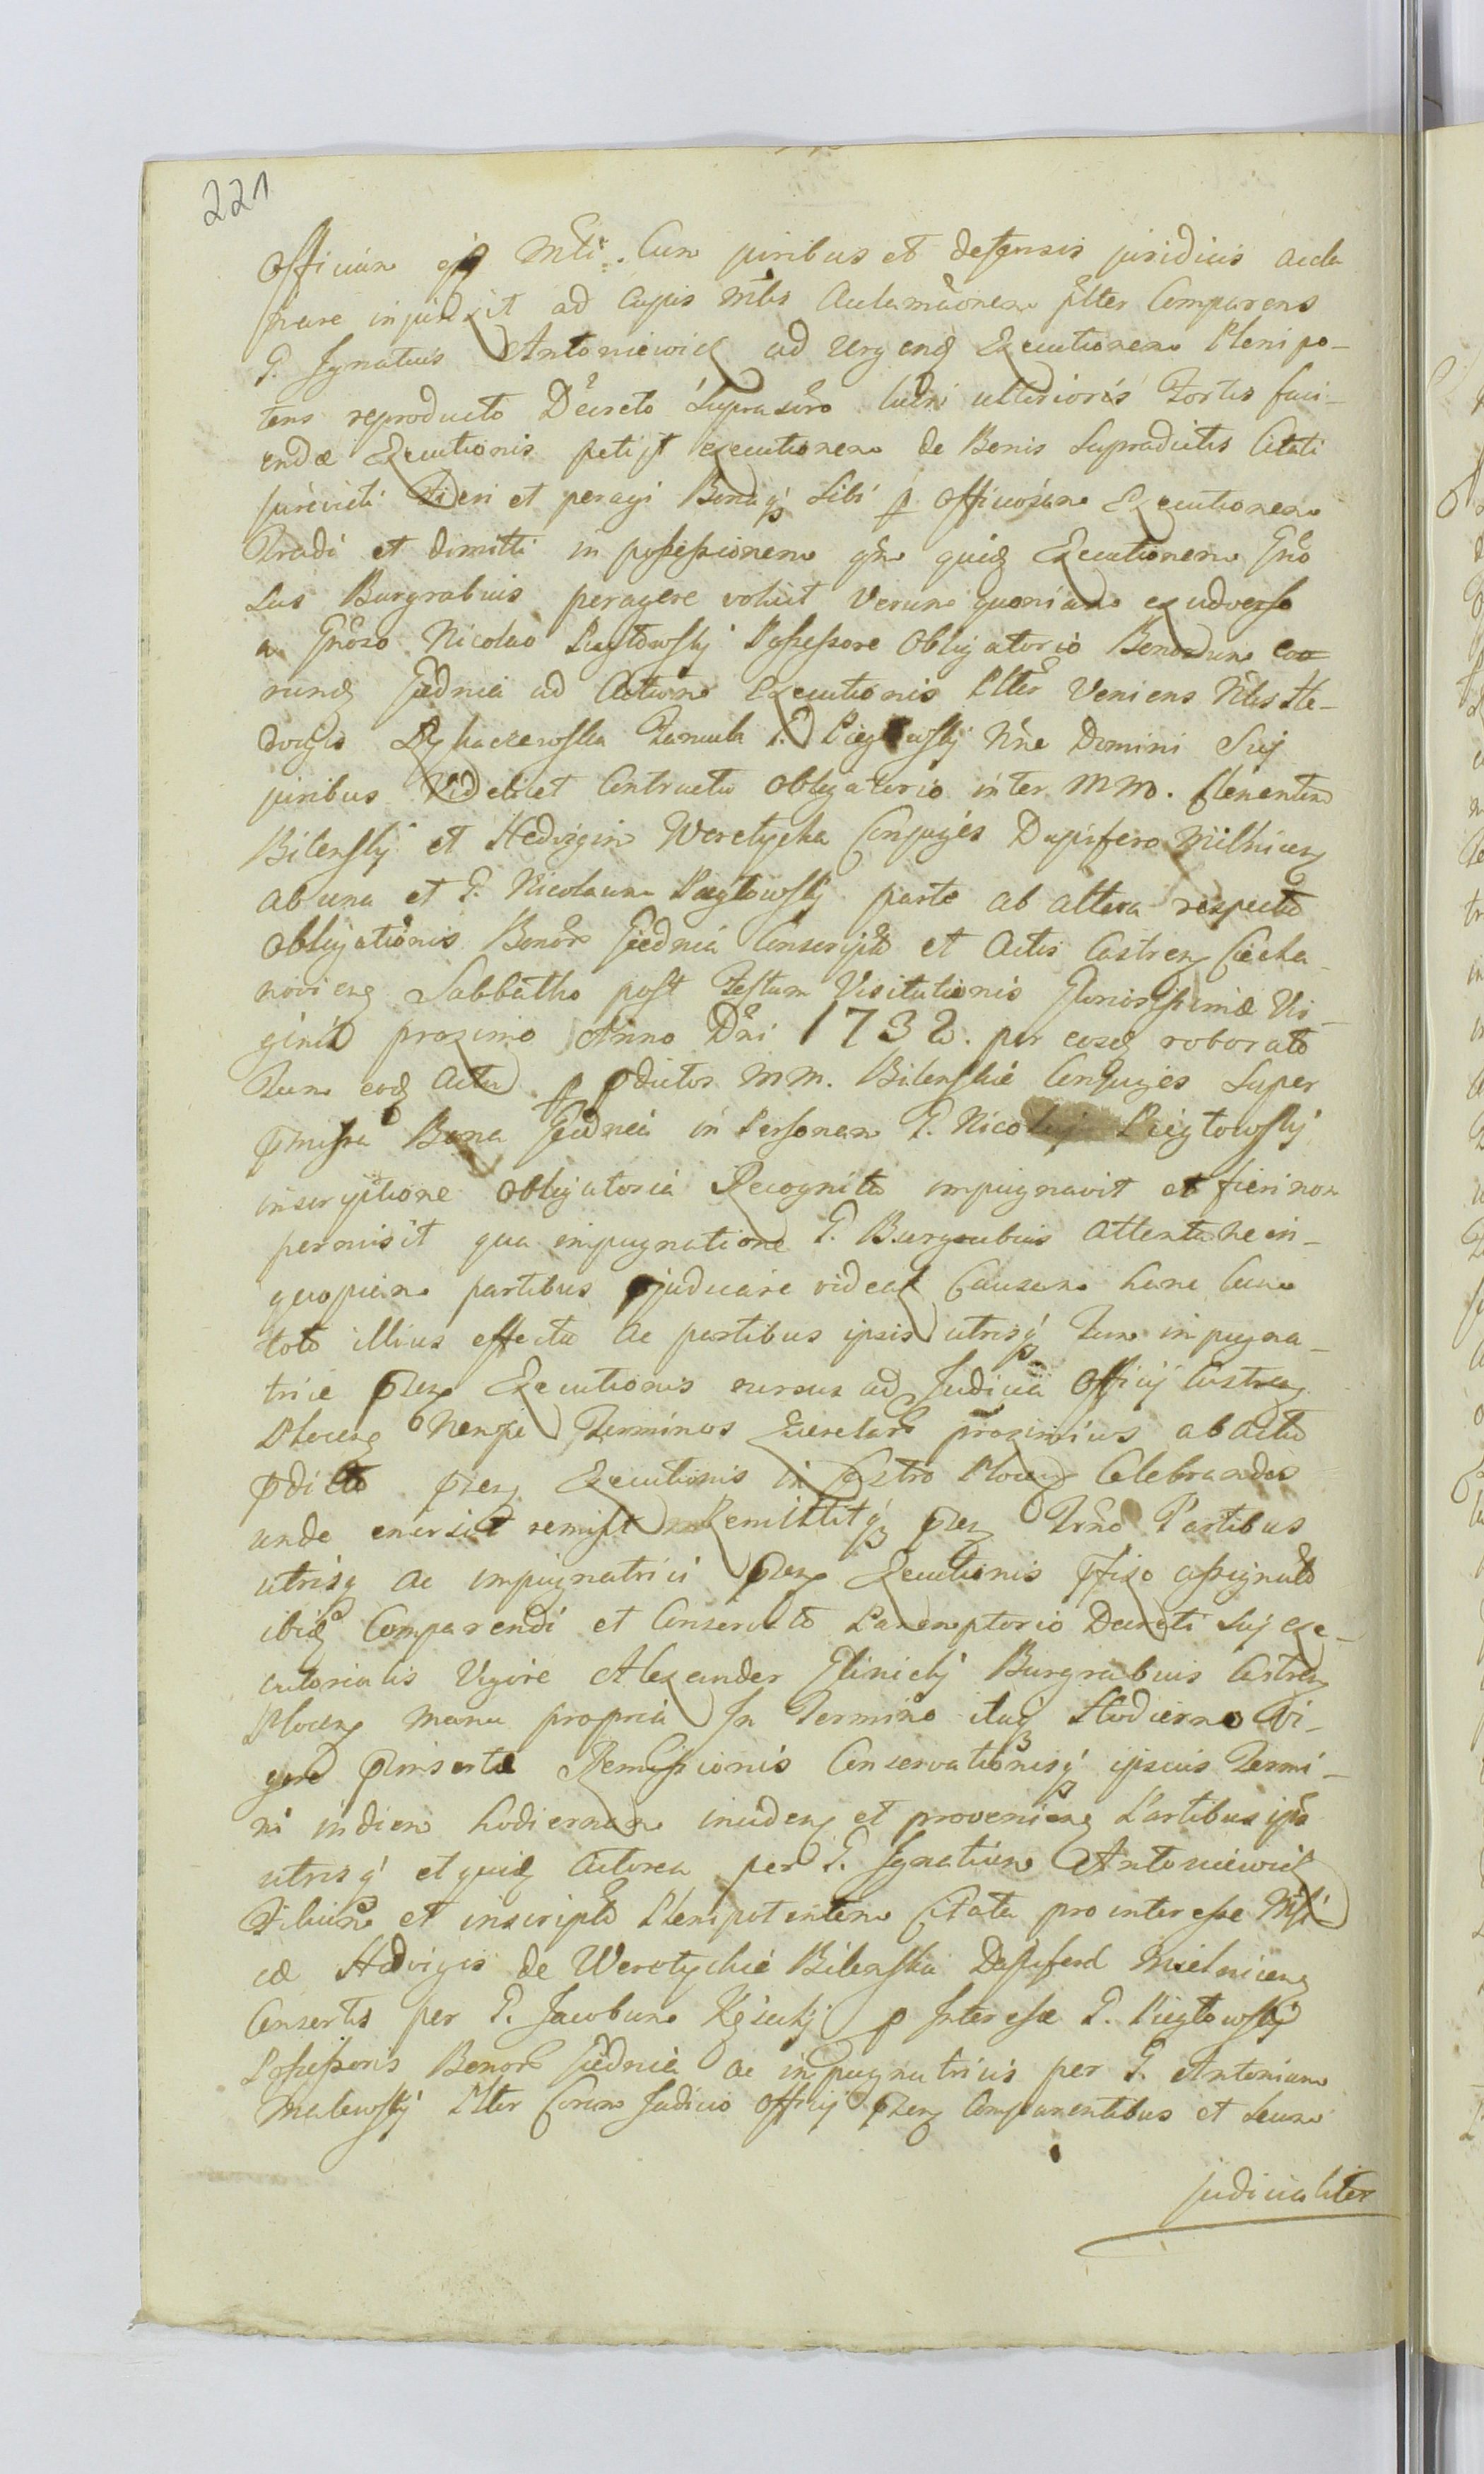 221
Officium ejq Mtti. Cum juribus et defensis juridicis acla
mare injunxit ad cujus mtis Aclamaonem pltter Comparens
G. Ignatius Antoniewicz ad Urgend Executionem Plenipo-
tens reproducto Decreto suprascro lucri ulterioris Fortis faci-
endæ Executionis petijt executionem de Bonis supradictis Citati
jurevicti Fieri et peragi Bonaq sibi p officiosam Executionem
Tradi et dimitti in possessionem qm quid Executionem Gnro
sus Burgrabius peragere voluit Verum quoniam ex adverso
a Gnroso Nicolao Piegłowskj Possessore Obligatorio Bonorum eoo
rund Giednia ad Actum Executionis Pltter Veniens Nlis He-
dvigis Famula G. Piegłowskj Nne Domini Suj
juribus Videlicet Contractu Obligatorio inter MM. Clementem
Bilenskj et Hedvigim Weretycka Conjuges Dapifero Milnicen
ab una et G. Nicolaum Piegłowskj parte ab altera respectu
obligationis Bonor Giednia Conscripto et Actis Castren Ciecha-
novien Sabbatho post Festum Visitationis Gloriosissimæ Vir-
ginis proximo Anno Dni 1732. per eosd roborato
Tum eod Actu p pdictos MM. Bilenskie Conjuges super
pmissa Bona Giednia in Personam G. Nicolaj Piegłowskj
inscriptione obligatoria Recognita impugnavit et fieri non
permisit qua impugnatione G. Burgrabius attenta ne in-
quopiam partibus pjudicare videat Causam hanc Cum
toto illius effectu ac partibus ipsis utrisq Tum impugna-
trice pten Executionis rursus ad Judicia Officij Castren
Plocen Nempe Terminos Querelar proximius ab actu
pdicto pten Executionis in Castro Plocen Celebrandos
unde emersit remisit Remittitq pten Trno Partibus
utrisq ac impugnatrici pten Executionis pfixo assignato
ibid Comparendi et Conservato Paremptorio Decreti Suj exe-
cutorialis Vigore Alexander Glinickj Burgrabius Castren
Plocen manu propria In Termino itaq Hodierno Vi-
gore pinsertæ Remissionis Conservationisq ipsius Termi-
ni in diem hodiernam inciden et provenien Partibus ipis
utrisq et quid Actorea per G. Ignatium Antoniewicz
Filium et inscripto Plenipotentem Citata pro interesse Mfi-
cæ Hedvigis de Werotyckie Bilenska Dapiferi Mielnicen
Consortis per G. Jacobum Kęsickj p Interesse G. Piegłowskj
Possessoris Bonor Giednia ac impugnatricis per G. Antonium
Malewskj Pltter Coram Judicio Officij pten Comparentibus et secum
judicialiter